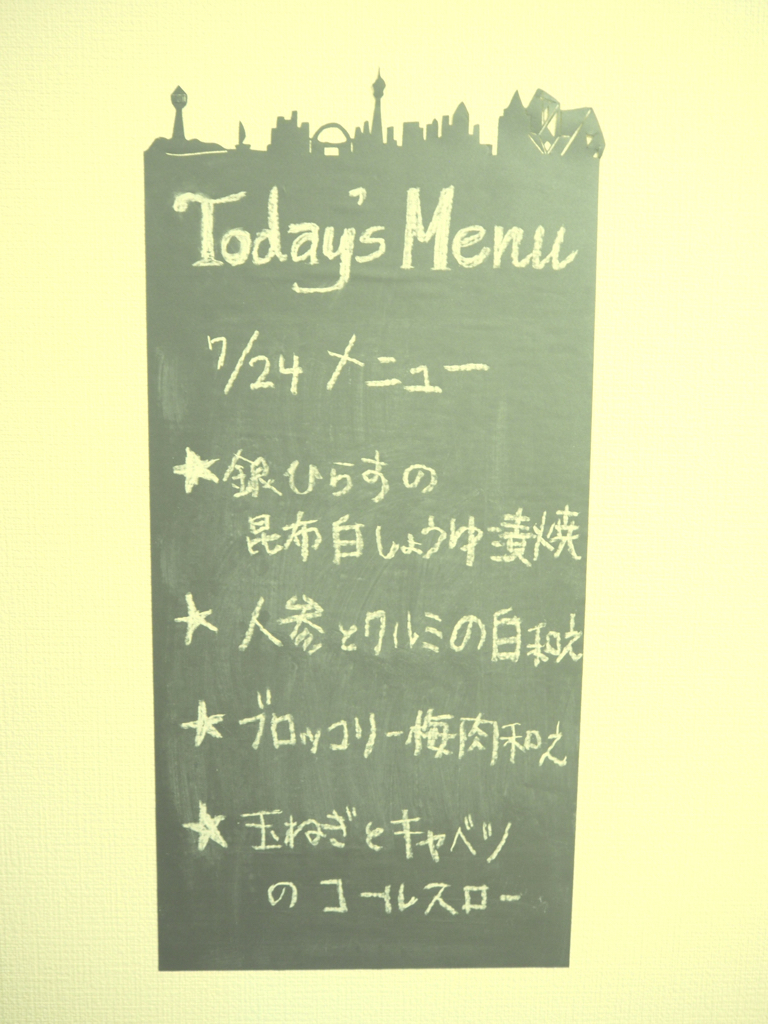 Today's Menu
7/24 メニュー
★銀ひらすの
昆布白しょうゆ漬焼
★人参とクルミの白和え
★ブロッコリー梅肉和え
★玉ねぎとキャベツ
のコールスロー